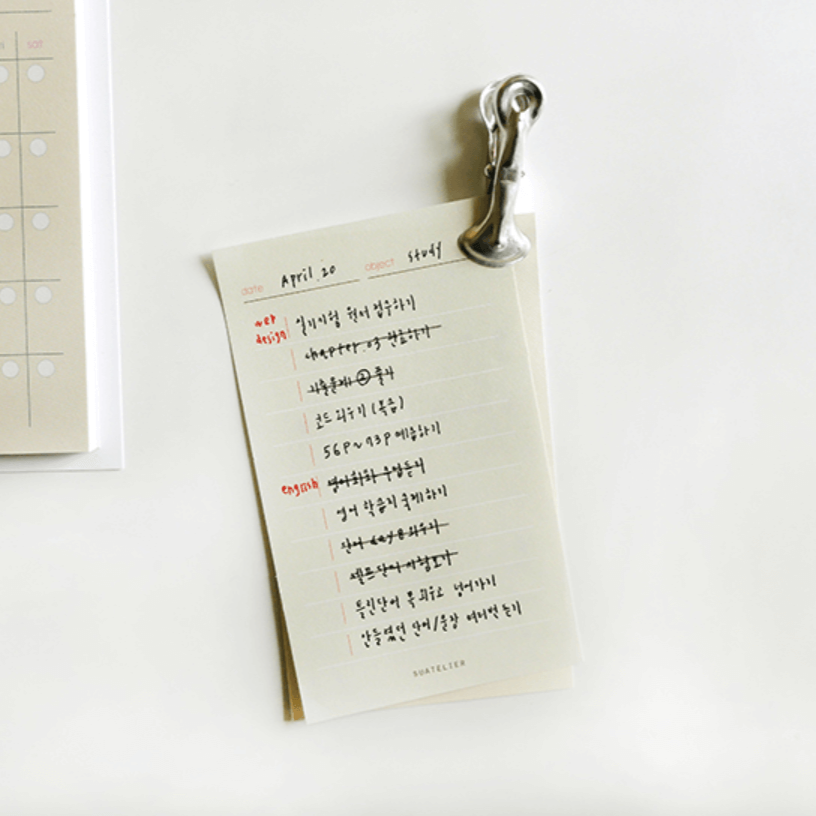 sat
date April. 20 object study
web design 필기시험 원서 접수하기
chapter.03 완료하기
기출문제 ② 풀기
코드 외우기 (복습)
56p~93p 예습하기
english 영어회화 수업듣기
영어 학습지 숙제하기
단어 day 8 외우기
셀프 단어 시험보기
틀린단어 꼭 외우고 넘어가기
안들렸던 단어/문장 여러번 듣기
SUATELIER